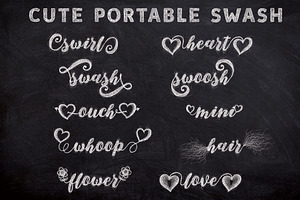 CUTE PORTABLE SWASH
swirl heart
swash swoosh
ouch mini
whoop hair
flower love